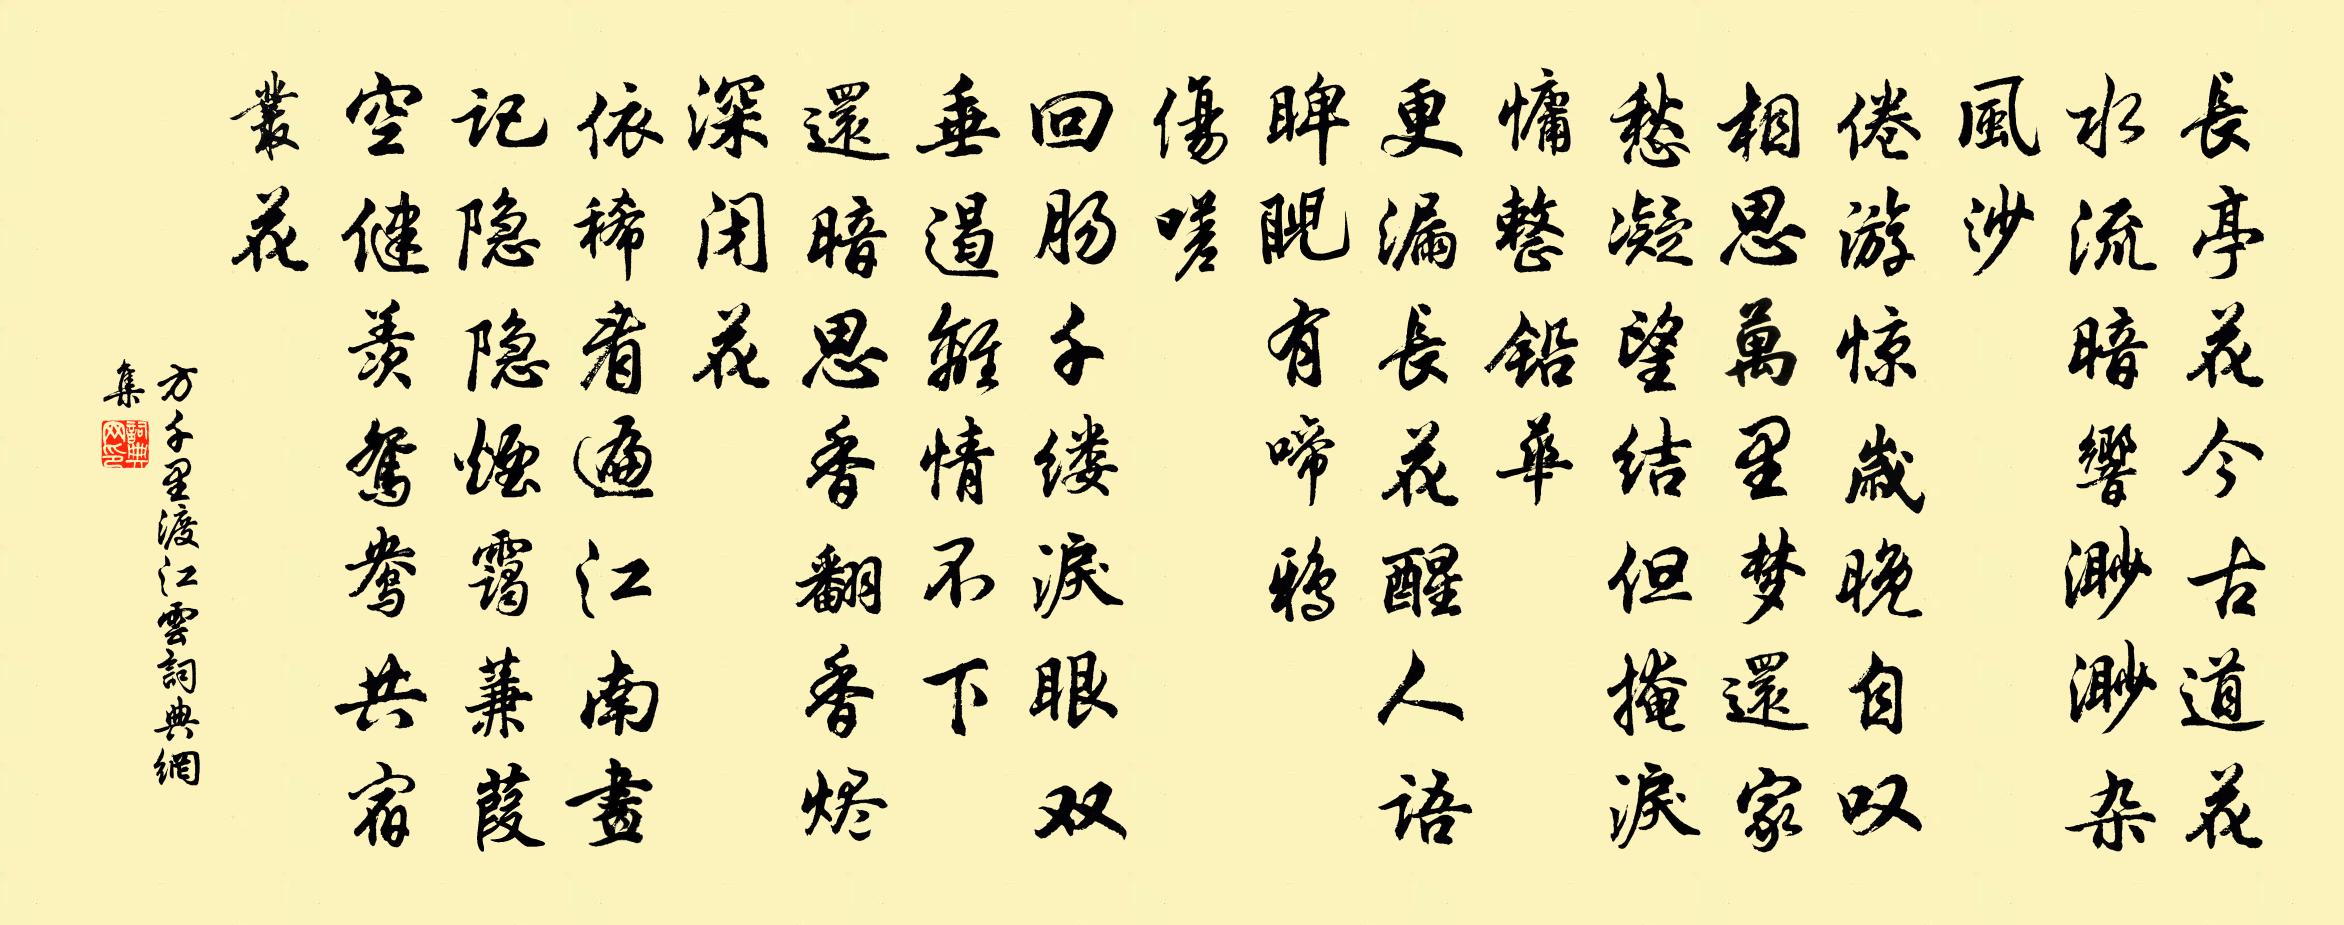 長亭花今古道花
水流暗響渺渺杂
風沙
倦游惊歲晚自叹
相思萬里梦還家
愁凝望结但掩淚
慵整铅華
更漏長花醒人语
睥睨有啼鸦
傷嗟
回肠千缕淚眼双
垂遏離情不下
還暗思香翻香烬
深闭花
依稀看遍江南畫
记隐隐煙靄蒹葭
空健羡鴛鴦共宿
叢花
方千里渡江雲詞典網
集
詞典网印